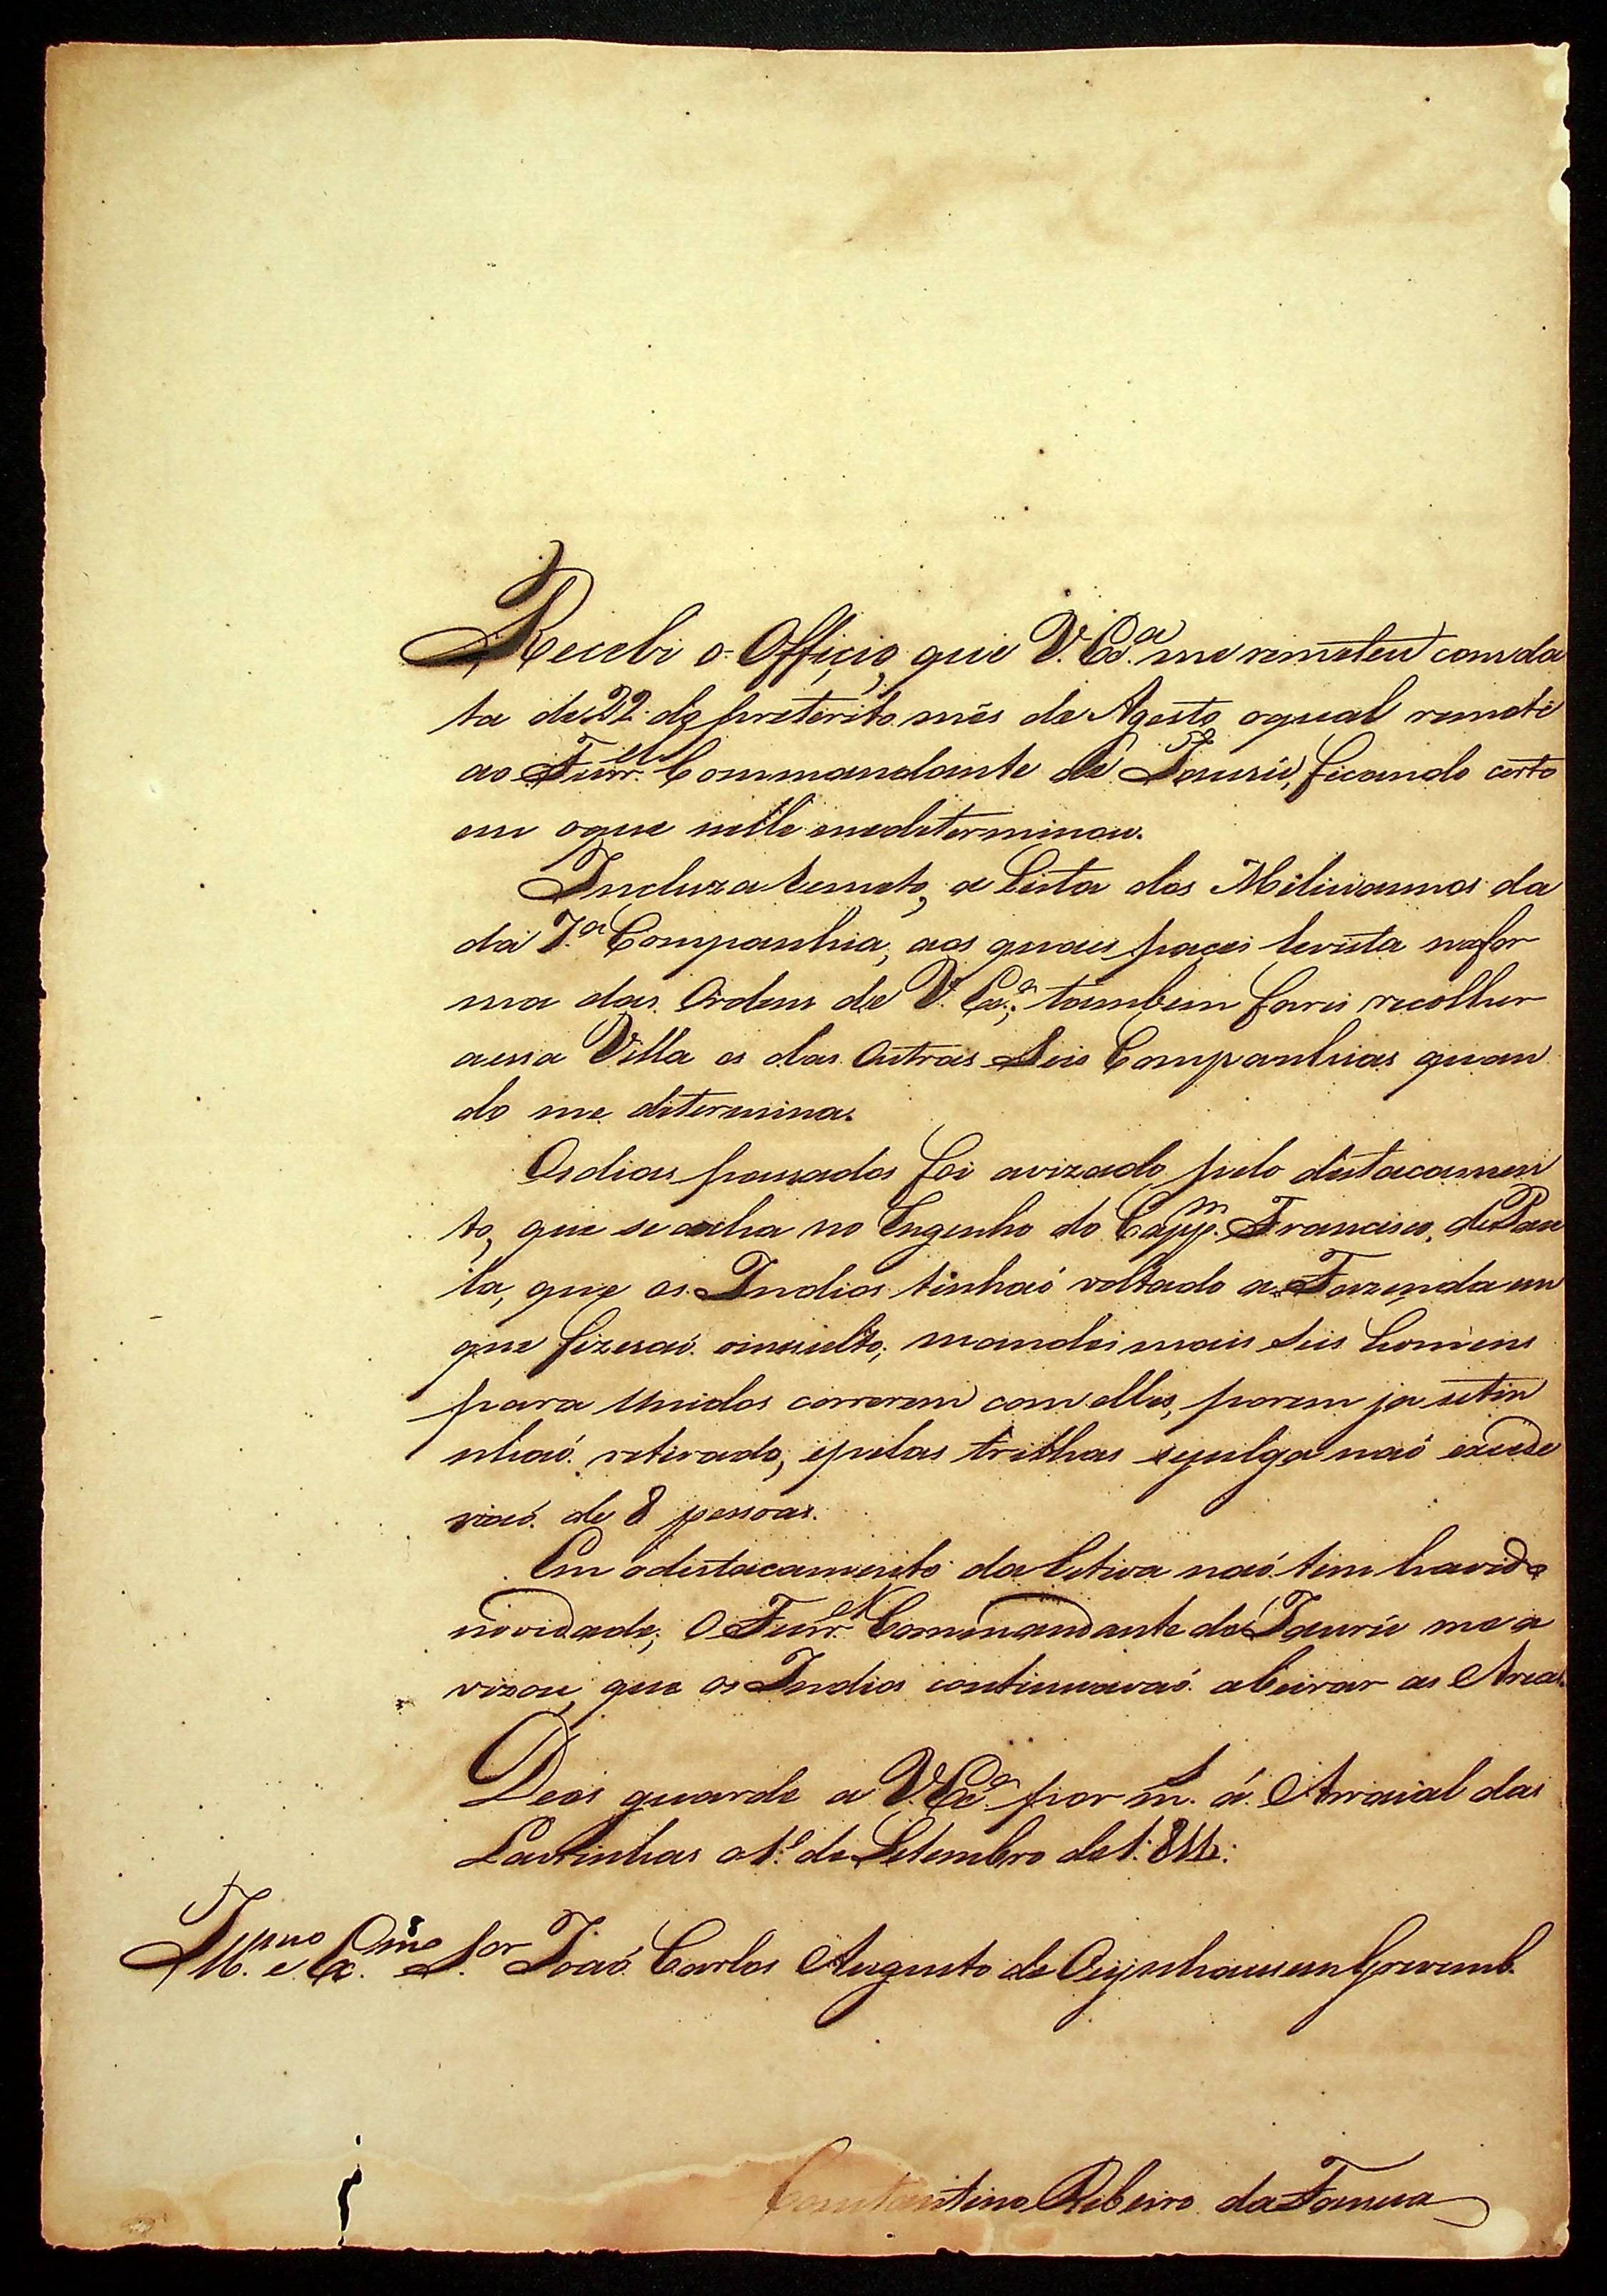 Recebi o Officio, que V. Ex.ª me remeteu com da
ta de 22 do preterito mês de Agosto oqual remeti
ao Furr.el Commandante do Jaurú, ficando certo
em oque nelle medeterminou.
Incluza remeto, a Lista dos Miliciannos da
da 7.ª Companhia, aos quais paçei revista nafor
ma das Ordens de V. Ex.ª; tambem farei recolher
aessa Villa os das Outras Seis Companhias quan
do me ditermina.
Osdias passados foi avizado pelo distacamen
to, que se acha no Engenho do Capp.m Francisco, de Pau
la, que os Indios tinhaó voltado a Fazenda em
que fizeraó oinsulto; mandei mais Seis homens
para Unidos correrem com elles, porem ja setin
nhaó retirado, epelas trilhas sejulga naó exsede
riaó de 8 pessoas.
Em odistacamento da naó tem havido
novidade; O Furr.el Commandante do Jaurú me a
vizou, que os Indios continuavaó abeirar as Areas.
Deos guarde a V. Ex.ª por m. á. Arraial das
Lavrinhas o 1.º de Setembro de 1:811:
Ill.mo e Ex.mo S.or Joaó Carlos Augusto de Oeynhausen Grevenb.
Constantino Ribeiro da Fonseca